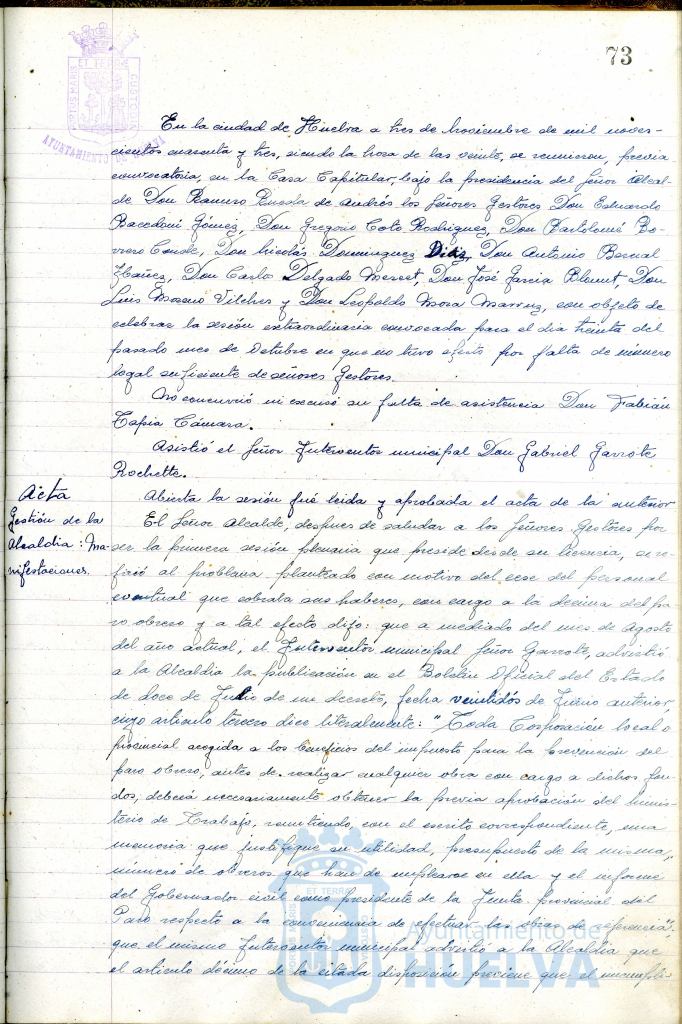 73
PORTUS MARIS ET TERRAE CUSTODIA
AYUNTAMIENTO DE HUELVA
En la ciudad de Huelva a tres de Noviembre de mil nove-
cientos cuarenta y tres, siendo la hora de las veinte, se reunieron, previa
convocatoria, en la Casa Capitular, bajo la presidencia del Señor Alcal-
de Don Ramiro Rueda de Andrés los Señores Gestores Don Eduardo
Gómez, Don Gregorio Coto Rodriguez, Don Bartolomé Bo-
rrero Conde, Don Nicolás Dominguez Diaz, Don Antonio Bernal
Ibañez, Don Carlos Delgado Don José Garcia Don
Luis Moreno Vilches y Don Leopoldo Mora con objeto de
celebrar la sesión extraordinaria convocada para el dia treinta del
pasado mes de Octubre en que no tuvo efecto por falta de número
legal suficiente de señores Gestores.
No concurrió ni excusó su falta de asistencia Don Fabián
Tapia Cámara.
Asistió el Señor Interventor municipal Don Gabriel Garrote
Rochette.
Acta
Abierta la sesión fué leida y aprobada el acta de la anterior
Gestión de la
Alcaldia: Ma-
nifestaciones.
El Señor Alcalde, despues de saludar a los Señores Gestores por
ser la primera sesión plenaria que preside desde su licencia, se re-
firió al problema planteado con motivo del cese del personal
eventual que cobraba sus haberes, con cargo a la decima del pa-
ro obrero y a tal efecto dijo: que a mediado del mes de Agosto
del año actual, el Interventor municipal Señor Garrote, advirtió
a la Alcaldia la publicación en el Boletin Oficial del Estado
de doce de Julio de un decreto, fecha veintidós de Junio anterior,
cuyo articulo tercero dice literalmente: "Toda Corporación local o
provincial acogida a los beneficios del impuesto para la prevención del
paro obrero, antes de realizar cualquier obra con cargo a dichos fon-
dos, deberá necesariamente obtener la previa aprobación del Minis-
terio de Trabajo, remitiendo, con el escrito correspondiente, una
memoria que justifique su utilidad, presupuesto de la misma,
número de obreros que han de emplearse en ella y el informe
del Gobernador civil como presidente de la Junta provincial del
Paro respecto a la conveniencia de efectuar la obra de referencia";
que el mismo Interventor municipal advirtió a la Alcaldia que
el articulo décimo de la citada disposición previene que el incumpli-
Ayuntamiento de
HUELVA